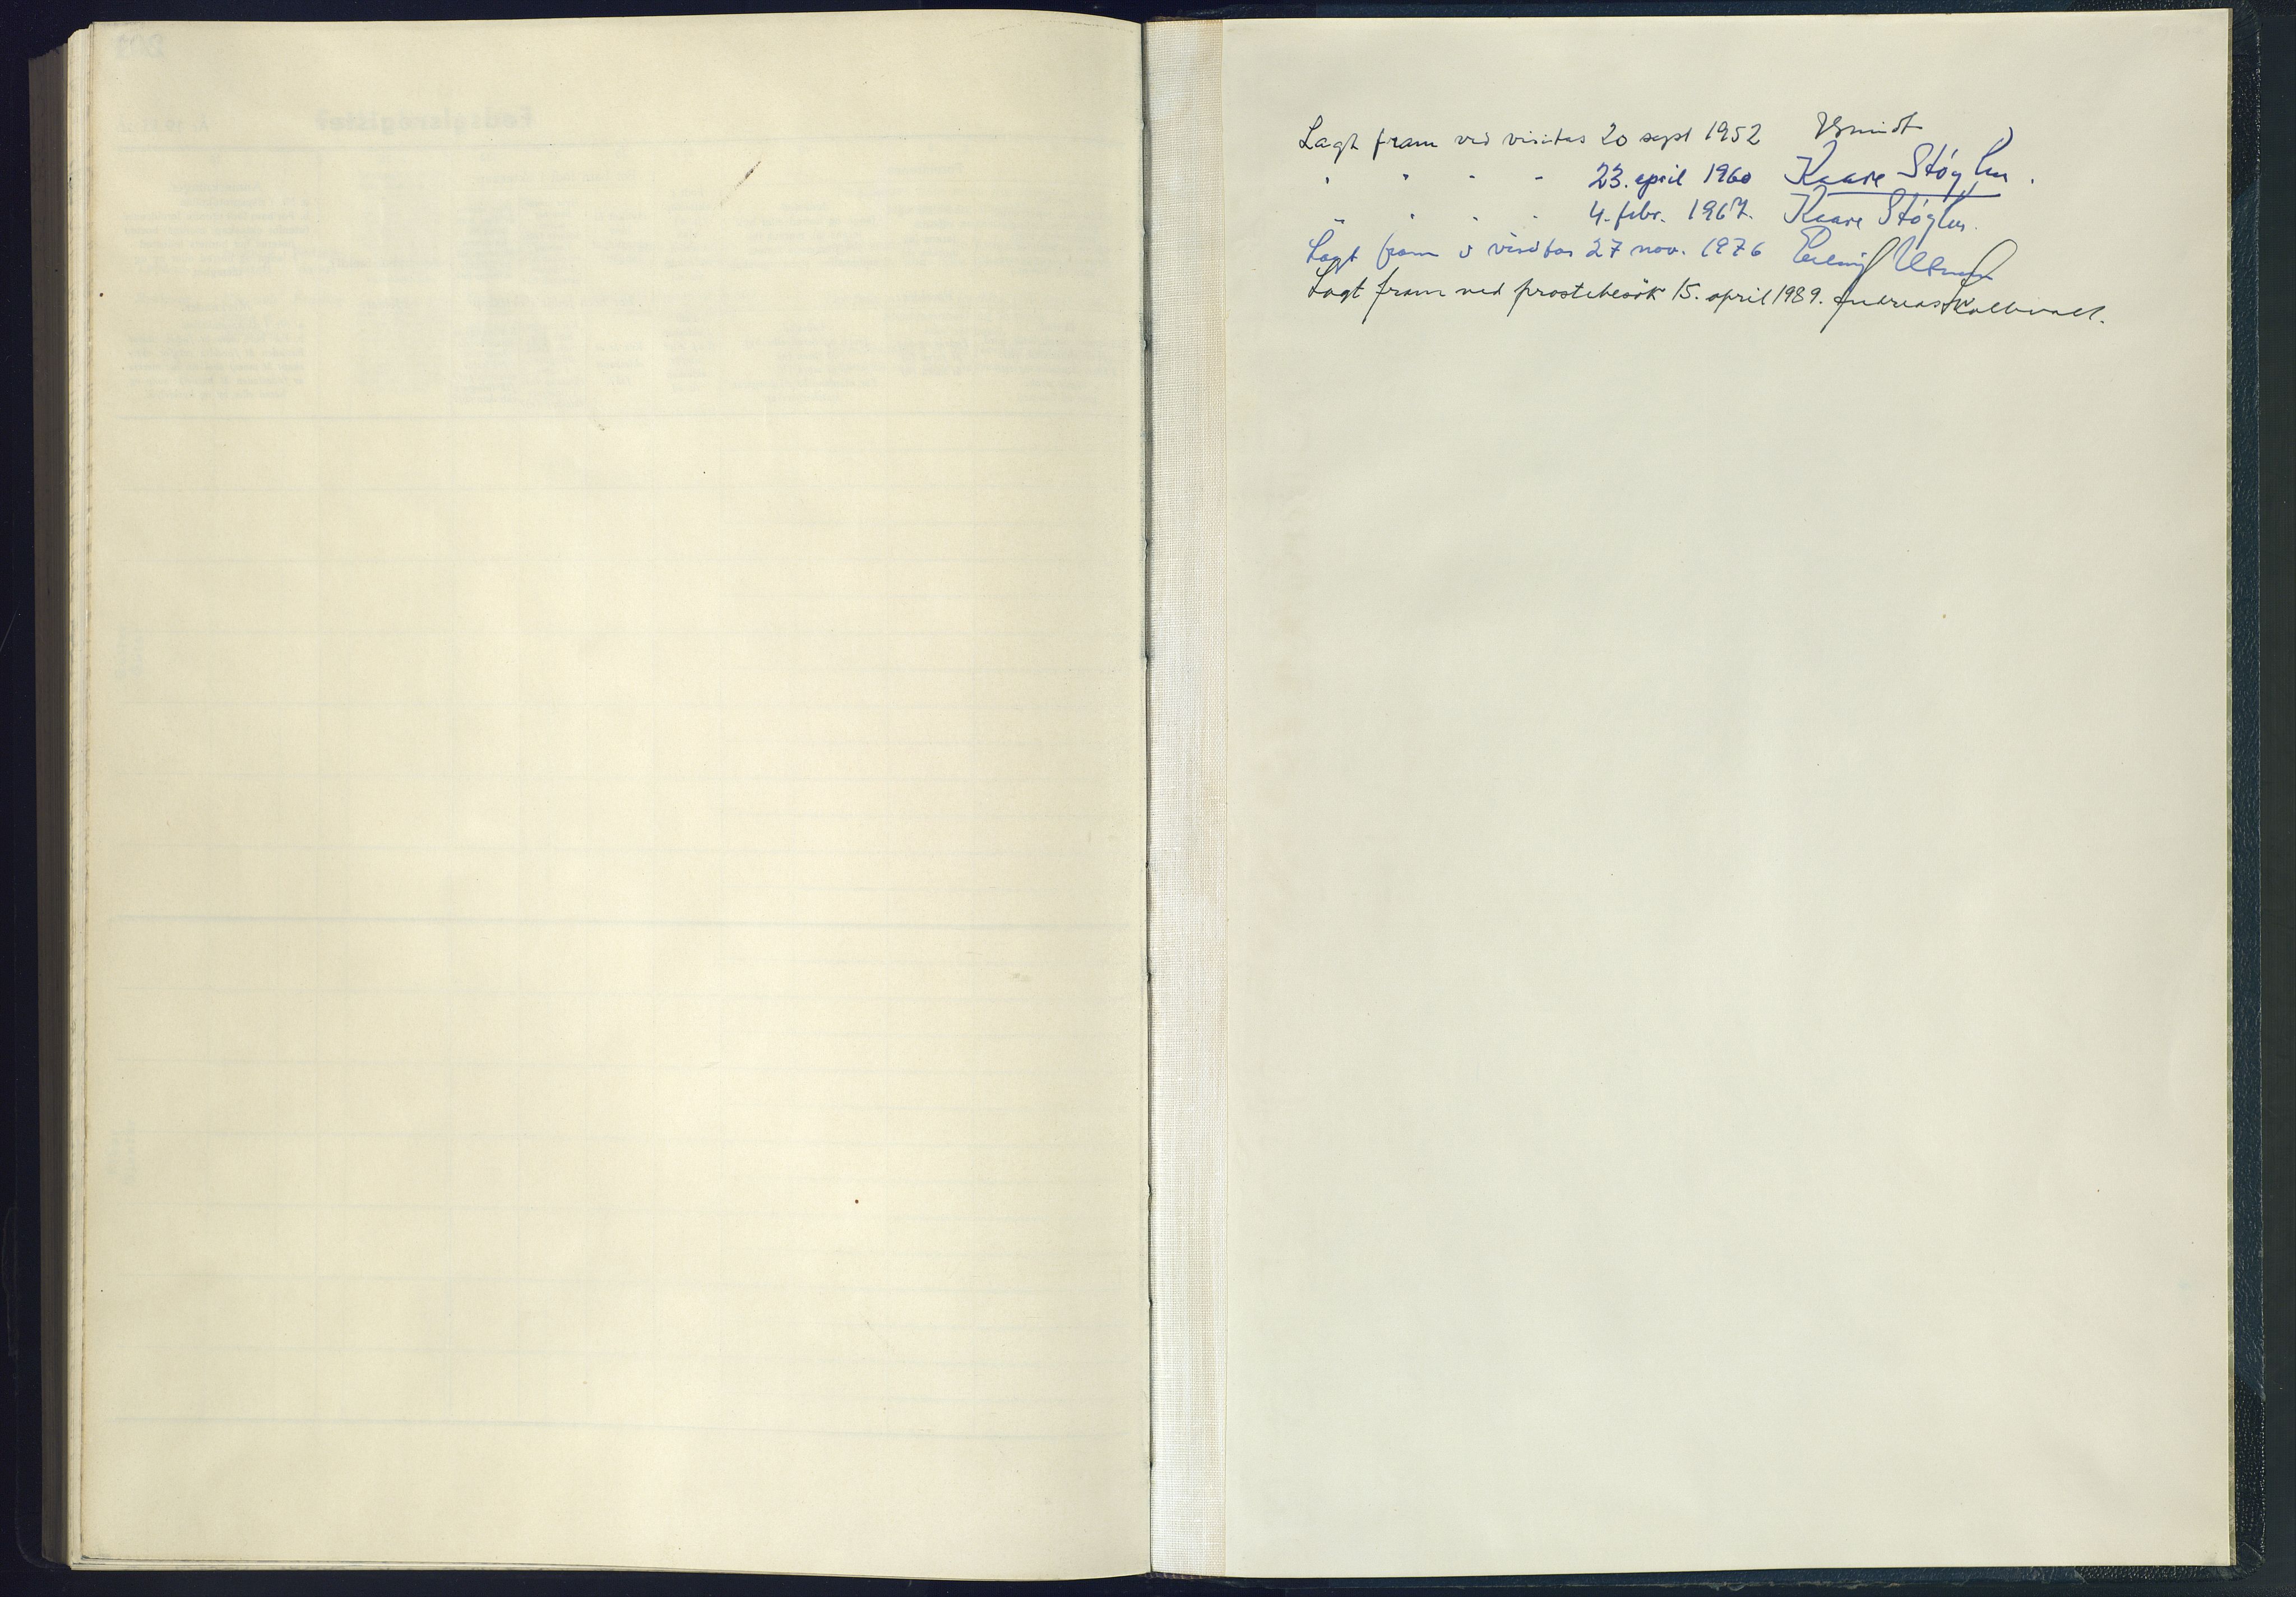 Lagt fram ved visitas 20 sept 1952 Smidt
" " " " 23. april 1960 Kaare Støylen.
" " " " 4. febr. 1967. Kaare Støylen.
Lagt fram v visitas 27 nov. 1976
Lagt fram ved prostebesøk 15. april 1989. Andreas
Fødselsregister